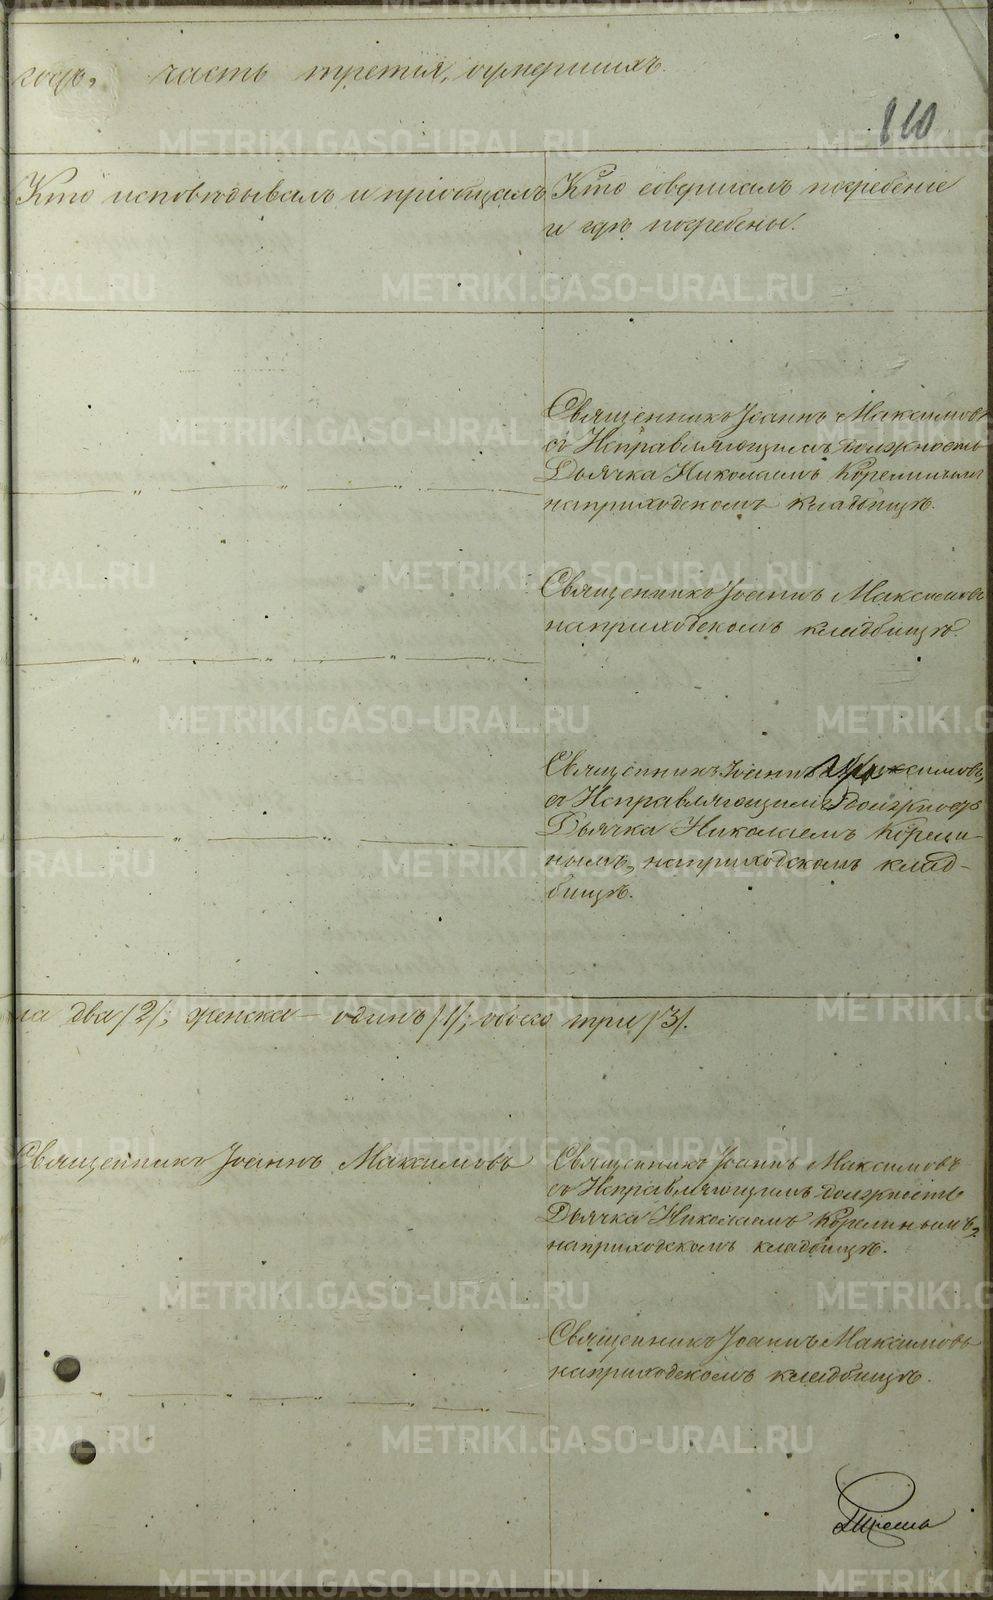 годъ, часть третія, умершихъ.
810
Кто исповѣдывалъ и пріобщалъ
Кто совершалъ погребеніе
и гдѣ погребены.
Священникъ Іоаннъ Максимовъ
съ Исправляющимъ должность
Дьячка Николаемъ Корелинымъ
наприходскомъ кладбищѣ.
Священникъ Іоаннъ Максимовъ
наприходскомъ кладбищѣ.
Священникъ Іоаннъ Максимовъ,
съ Исправляющимъ должность
Дьячка Николаемъ Корели-
нымъ, наприходскомъ клад-
бищѣ.
ла два /2/; женска – одинъ /1/; обоего три /3/.
Священникъ Іоаннъ Максимовъ
Священникъ Іоаннъ Максимовъ
съ Исправляющимъ должность
Дьячка Николаемъ Корелинымъ,
наприходскомъ кладбищѣ.
Священникъ Іоаннъ Максимовъ
наприходскомъ кладбищѣ.
METRIKI.GASO-URAL.RU